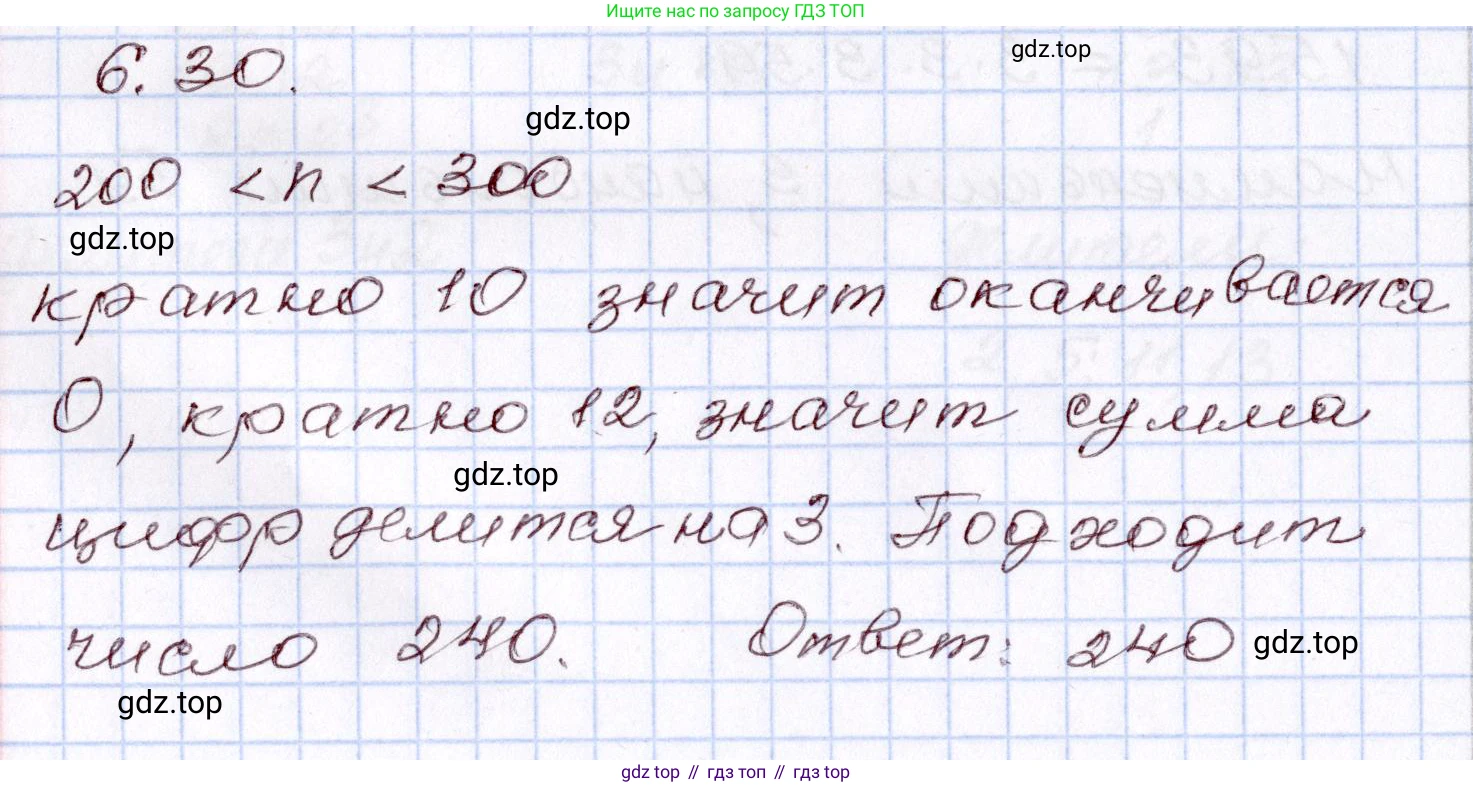 Ищите нас по запросу ГДЗ ТОП
6.30.
gdz.top
gdz.top
200 < n < 300
gdz.top
кратно 10 значит оканчивается
0, кратно 12, значит сумма
gdz.top
цифр делится на 3. Подходит
число 240. Ответ: 240
gdz.top
gdz.top
gdz top // гдз топ // гдз top